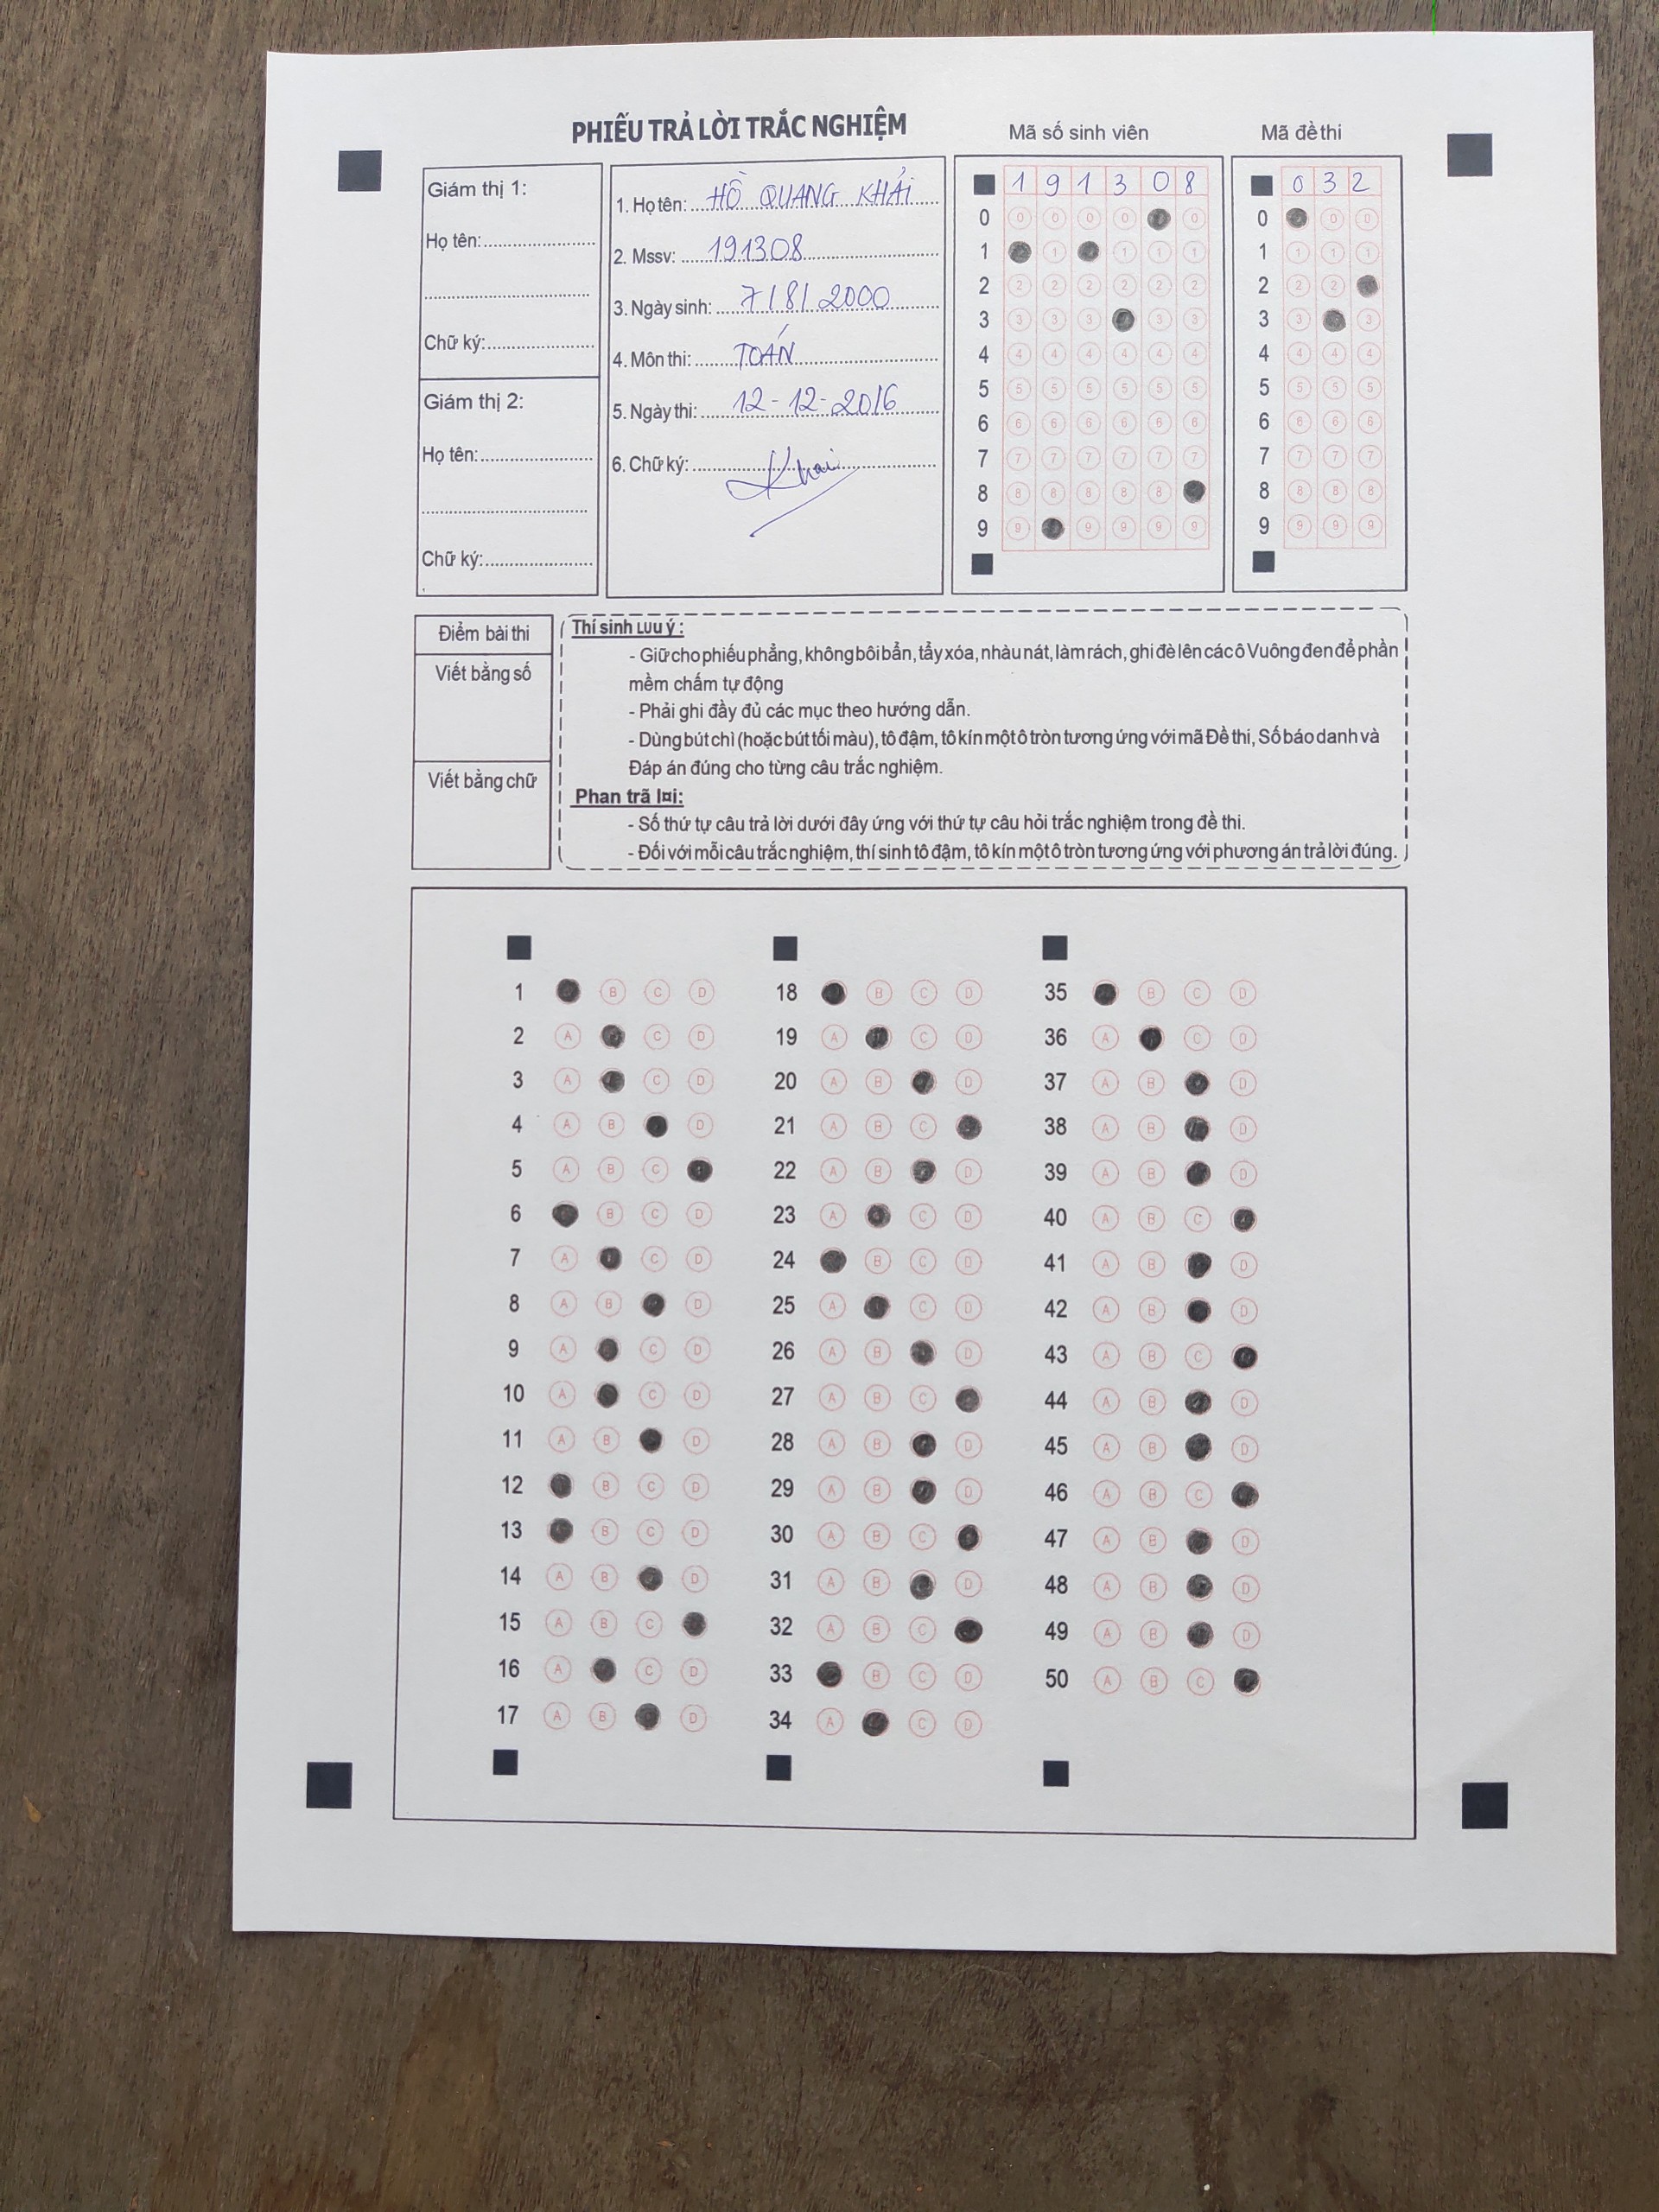 PHIẾU TRẢ LỜI TRẮC NGHIỆM
Giám thị 1:
Họ tên:
Chữ ký:
Giám thị 2:
Họ tên:
Chữ ký:
1. Họ tên: HỒ QUANG KHẢI
2. Mssv: 191308
3. Ngày sinh: 7/8/2000
4. Môn thi: TOÁN
5. Ngày thi: 12-12-2016
6. Chữ ký: Khai
Mã số sinh viên
1 9 1 3 0 8
0 0 0 0 0 0
1 1 1 1 1
2 2 2 2 2 2 2
3 3 3 3 3 3
4 4 4 4 4 4 4
5 5 5 5 5 5 5
6 6 6 6 6 6 6
7 7 7 7 7 7 7
8 8 8 8 8 8
9 9 9 9 9 9
Mã đề thi
0 3 2
0 0 0
1 1 1 1
2 2 2
3 3 3
4 4 4 4
5 5 5 5
6 6 6 6
7 7 7 7
8 8 8 8
9 9 9 9
Điểm bài thi
Viết bằng số
Viết bằng chữ
Thí sinh LUu ý :
- Giữ cho phiếu phẳng, không bôi bẩn, tẩy xóa, nhàu nát, làm rách, ghi đè lên các ô Vuông đen để phần
mềm chấm tự động
- Phải ghi đầy đủ các mục theo hướng dẫn.
- Dùng bút chì (hoặc bút tối màu), tô đậm, tô kín một ô tròn tương ứng với mã Đề thi, Số báo danh và
Đáp án đúng cho từng câu trắc nghiệm.
Phan trã l¤i:
- Số thứ tự câu trả lời dưới đây ứng với thứ tự câu hỏi trắc nghiệm trong đề thi.
- Đối với mỗi câu trắc nghiệm, thí sinh tô đậm, tô kín một ô tròn tương ứng với phương án trả lời đúng.
1 B C D
2 A C D
3 A C D
4 A B D
5 A B C
6 B C D
7 A C D
8 A B D
9 A C D
10 A C D
11 A B D
12 B C D
13 B C D
14 A B D
15 A B C
16 A C D
17 A B D
18 B C D
19 A C D
20 A B D
21 A B C
22 A B D
23 A C D
24 B C D
25 A C D
26 A B D
27 A B C
28 A B D
29 A B D
30 A B C
31 A B D
32 A B C
33 B C D
34 A C D
35 B C D
36 A C D
37 A B D
38 A B D
39 A B D
40 A B C
41 A B D
42 A B D
43 A B C
44 A B D
45 A B D
46 A B C
47 A B D
48 A B D
49 A B D
50 A B C